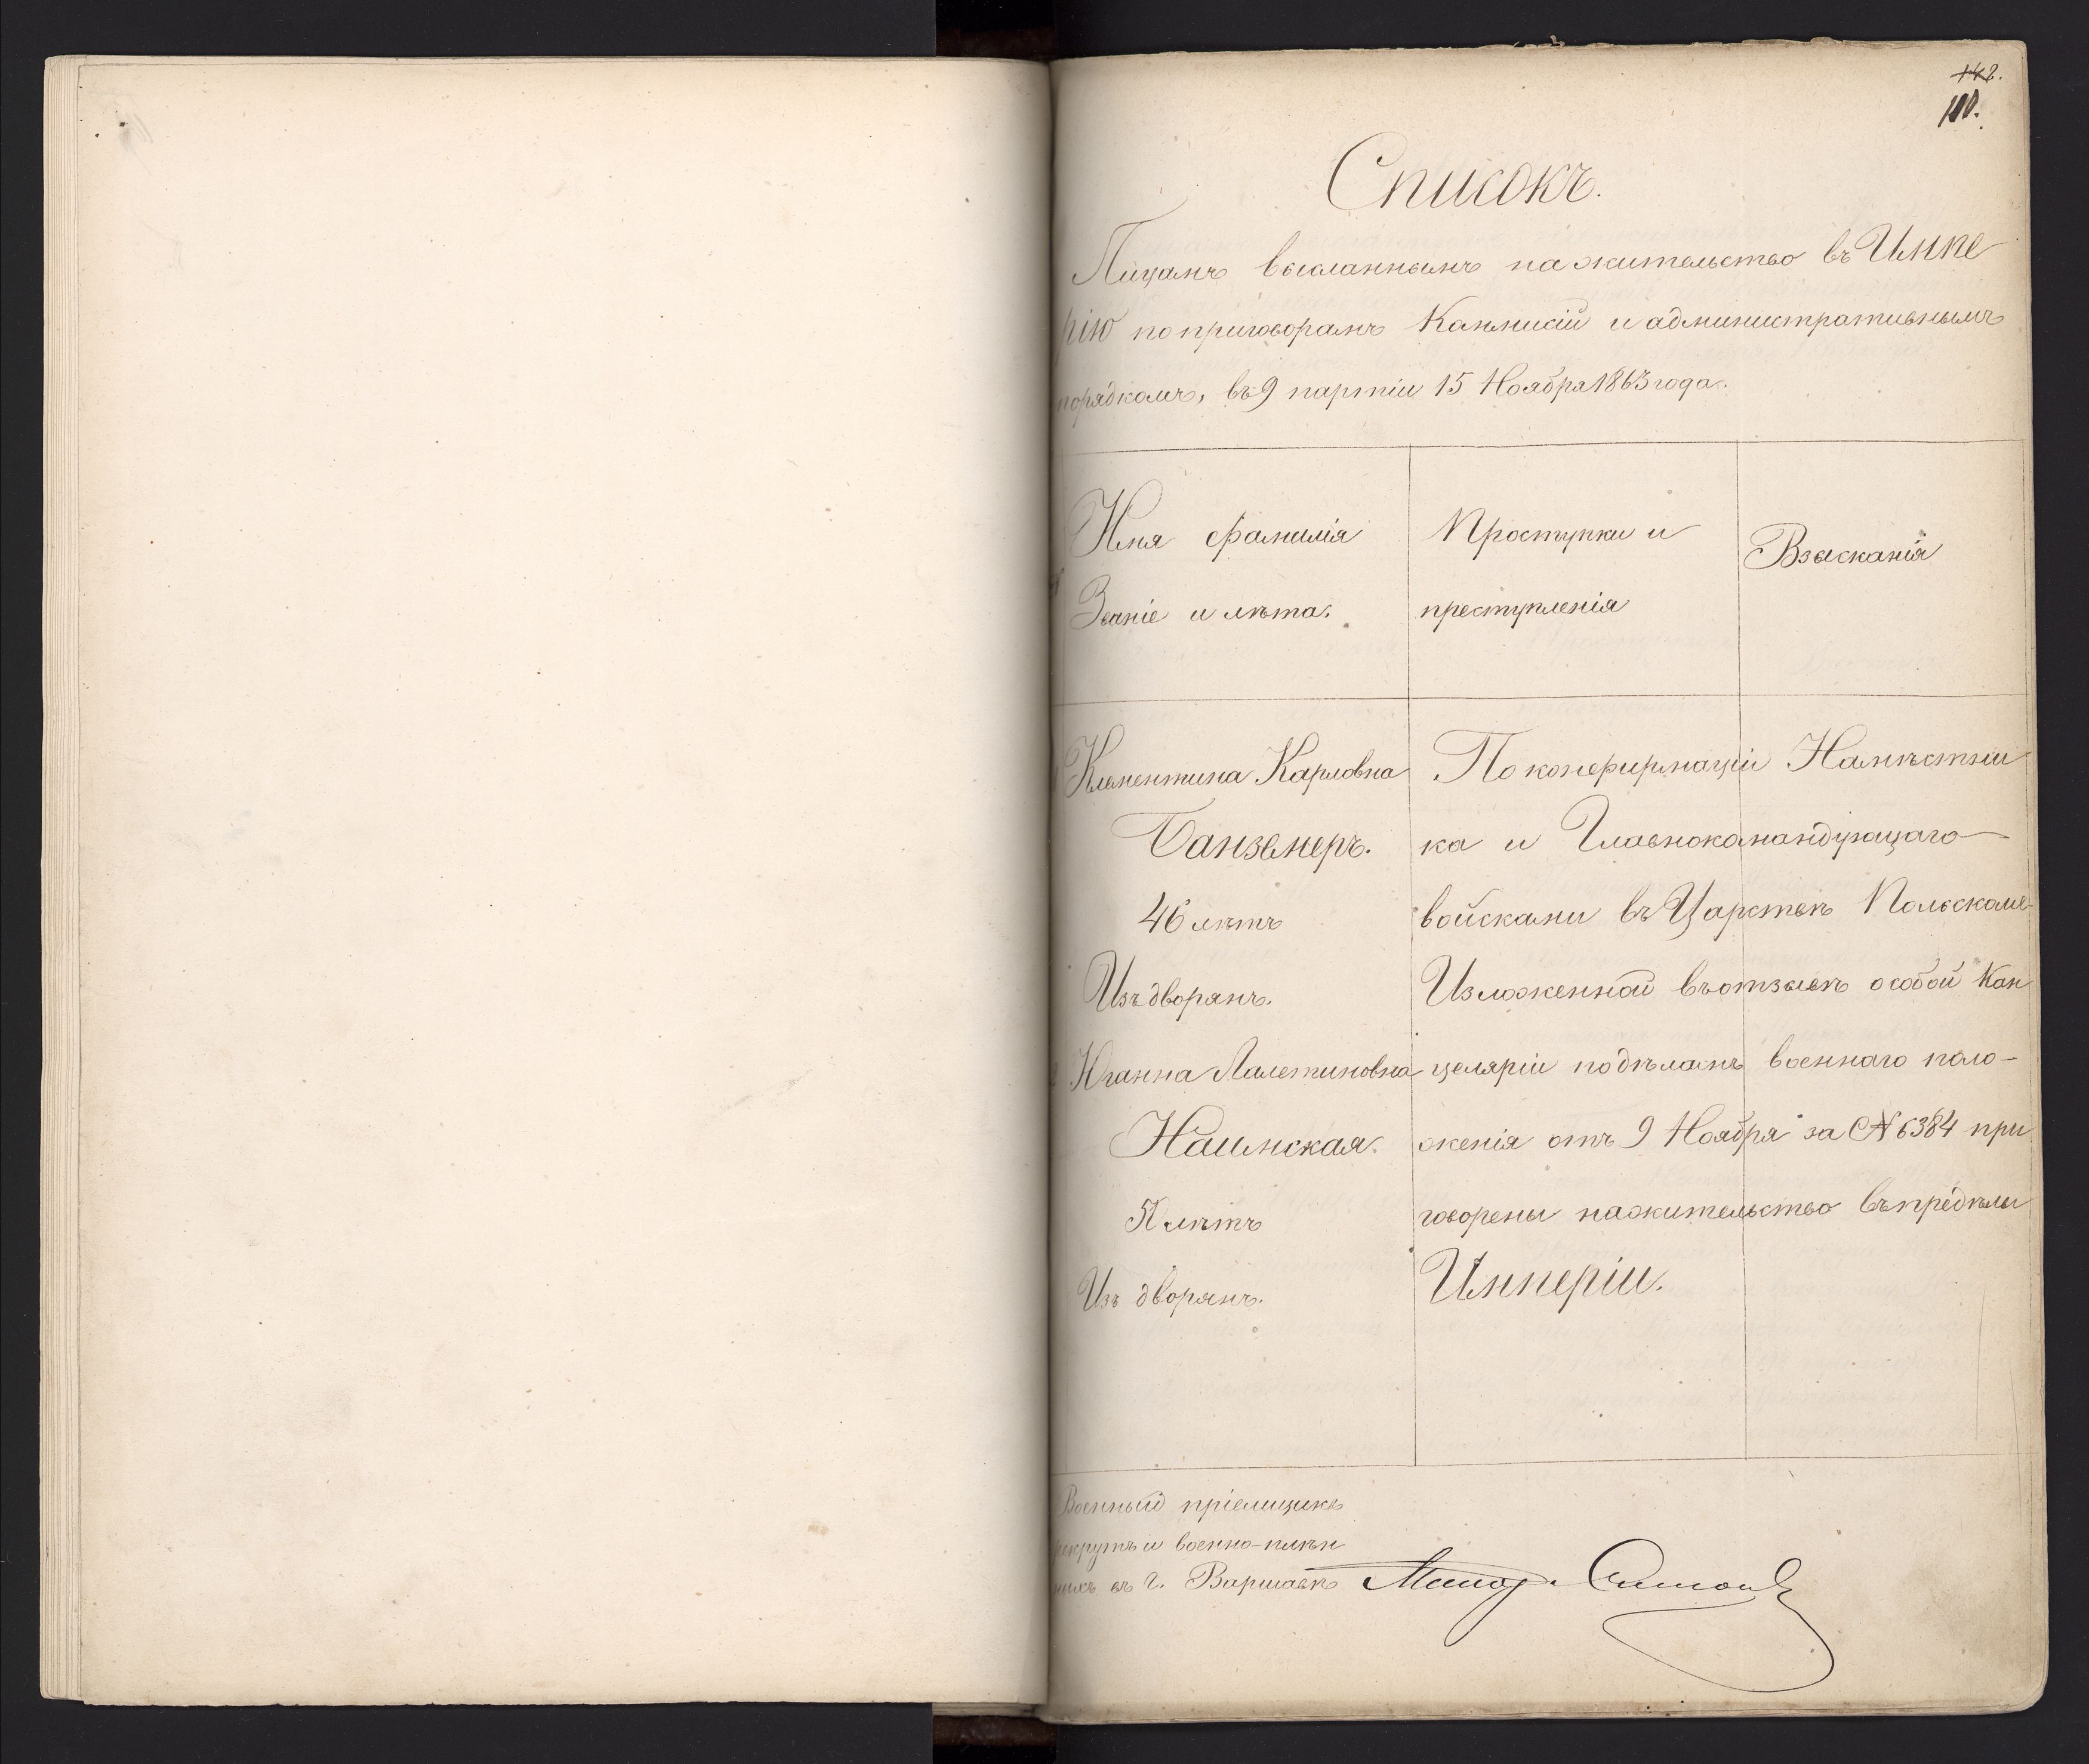 142.
110.
Списокъ.
Лицамъ высланнымъ на жительство въ Импе
рію по приговорамъ Каммисій и административнымъ
порядкомъ, въ 9 партіи 15 Ноября 1863 года.
Имя Фамилія
Званіе и лѣта.
Проступки и
преступленія
Взысканія
Клементина Карловна
Банземеръ.
46 лѣтъ
Изъ дворянъ.
Юганна Валетиновна
Наимская.
50 лѣтъ
Изъ дворянъ.
По конфирмаціи Намѣстни
ка и Главнокамандующаго
войсками въ Царствѣ Польскомъ
Изложенной въ отзывѣ особой Кан
целяріи по дѣламъ военнаго поло-
женія отъ 9 Ноября за № 6384 при
говорены на жительство въ предѣлы
Имперіи.
Военный пріемщикъ
рекрутъ и военно-плѣн
ныхъ въ г. Варшавѣ Маіоръ